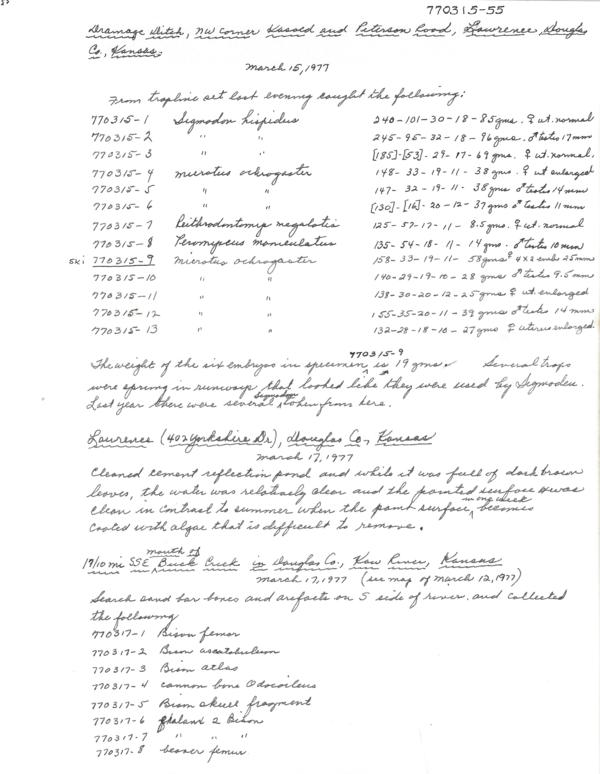 770315-55
Drainage Ditch, NW corner Kasold and Peterson Road, Lawrence, Douglas
Co., Kansas.
March 15, 1977
From trapline set last evening caught the following:
770315-1 Sigmodon hispidus 240-101-30-18-85gms. ♀ ut. normal
770315-2 " " 245-95-32-18-96gms. ♂ testis 17mm
770315-3 " " [185]-[53]-29-17-69gms. ♀ ut. normal.
770315-4 Microtus ochrogaster 148-33-19-11-38gms. ♀ ut enlarged
770315-5 " " 147-32-19-11-38gms ♂ testis 14mm
770315-6 " " [130]-[16]-20-12-37gms ♂ testis 11mm
770315-7 Reithrodontomys megalotis 125-57-17-11-8.5gms. ♀ ut. normal
770315-8 Peromyscus maniculatus 135-54-18-11-14gms. ♂ testis 10mm
SKi 770315-9 Microtus ochrogaster 158-33-19-11-58gms ♀ 4x2 emb 25mm
770315-10 " " 140-29-19-10-28gms ♂ testis 9.5mm
770315-11 " " 138-30-20-12-25gms ♀ ut. enlarged
770315-12 " " 155-35-20-11-39gms ♂ testis 14mm
770315-13 " " 132-28-18-10-27gms ♀ uterus enlarged.
The weight of the six embryos in specimen 770315-9 is 19 gms. Several traps
were sprung in runways that looked like they were used by Sigmodon.
Last year there were several Sigmodon taken from here.
Lawrence (402 Yorkshire Dr), Douglas Co, Kansas
March 17, 1977
Cleaned cement reflection pond and while it was full of dark brown
leaves, the water was relatively clear and the painted surface was
clean in contrast to summer when the paint surface in one week becomes
coated with algae that is difficult to remove.
1 9/10 mi SSE mouth of Buck Creek in Douglas Co., Kaw River, Kansas
March 17, 1977 (see map of March 12, 1977)
Search sand bar bones and artifacts on S side of river and collected
the following
770317-1 Bison femur
770317-2 Bison acetabulum
770317-3 Bison atlas
770317-4 cannon bone Odocoileus
770317-5 Bison skull fragment
770317-6 phalanx 2 Bison
770317-7 " " "
770317-8 beaver femur